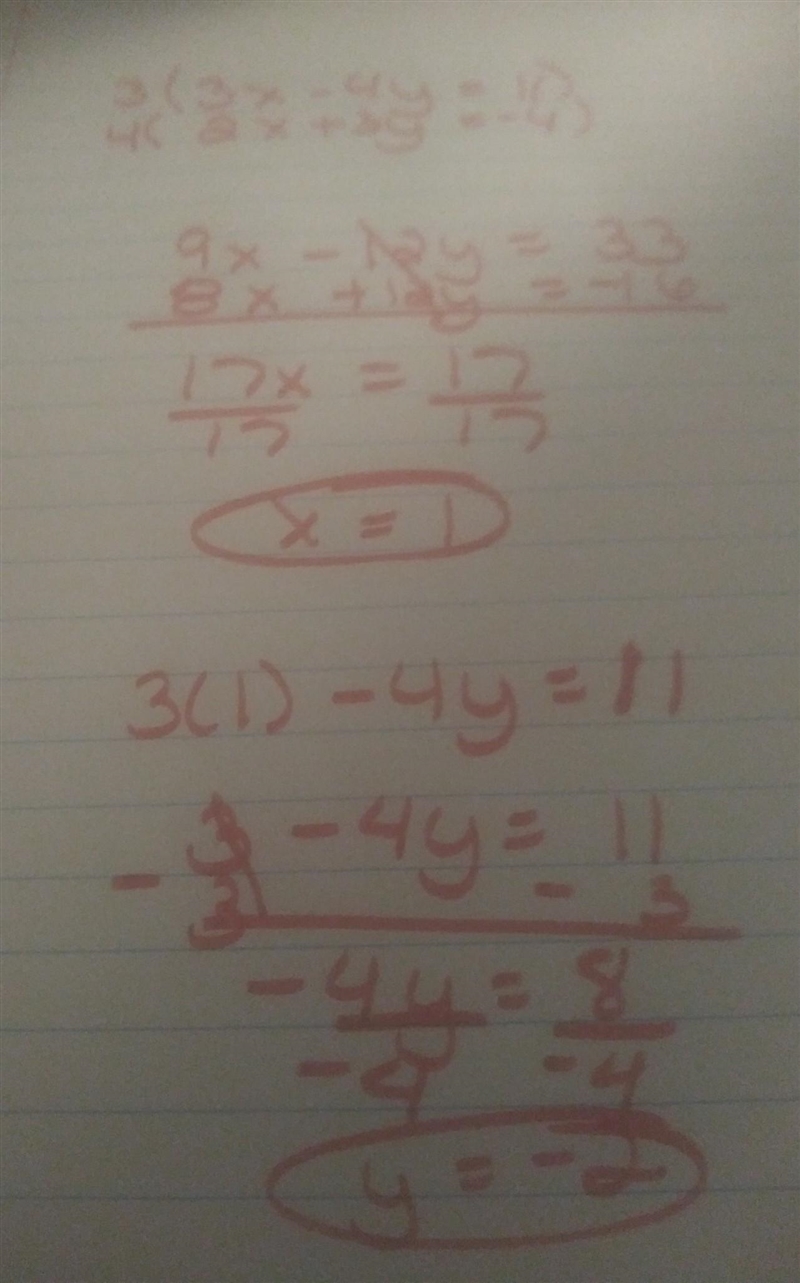 3(3x - 4y = 11)
4(2x + 3y = -4)
9x - 12y = 33
8x + 12y = -16
17x = 17
17 17
x = 1
3(1) - 4y = 11
3 - 4y = 11
- 3 - 3
-4y = 8
-4 -4
y = -2